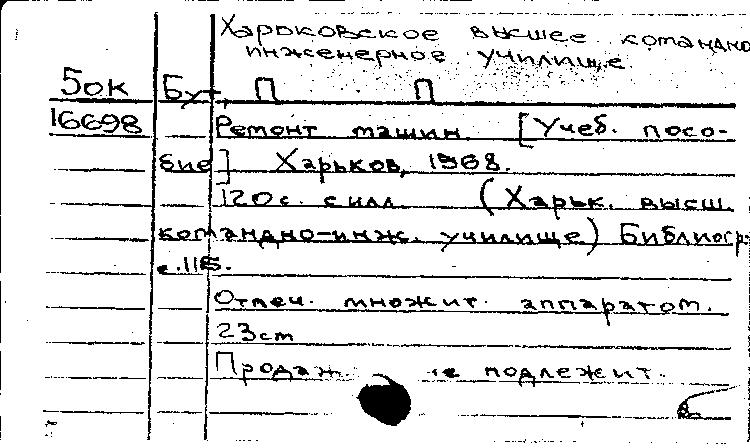 Харьковское высшее командно
инженерное училище.
5ок Бу П П
16698 Ремонт машин. [Учеб. посо-
бие] Харьков, 1968.
120с. с илл. (Харьк. высш.
командно-инж. училище) Библиогр:
с.115.
Отпеч. множит. аппаратом.
23см
Продаж. не подлежит.